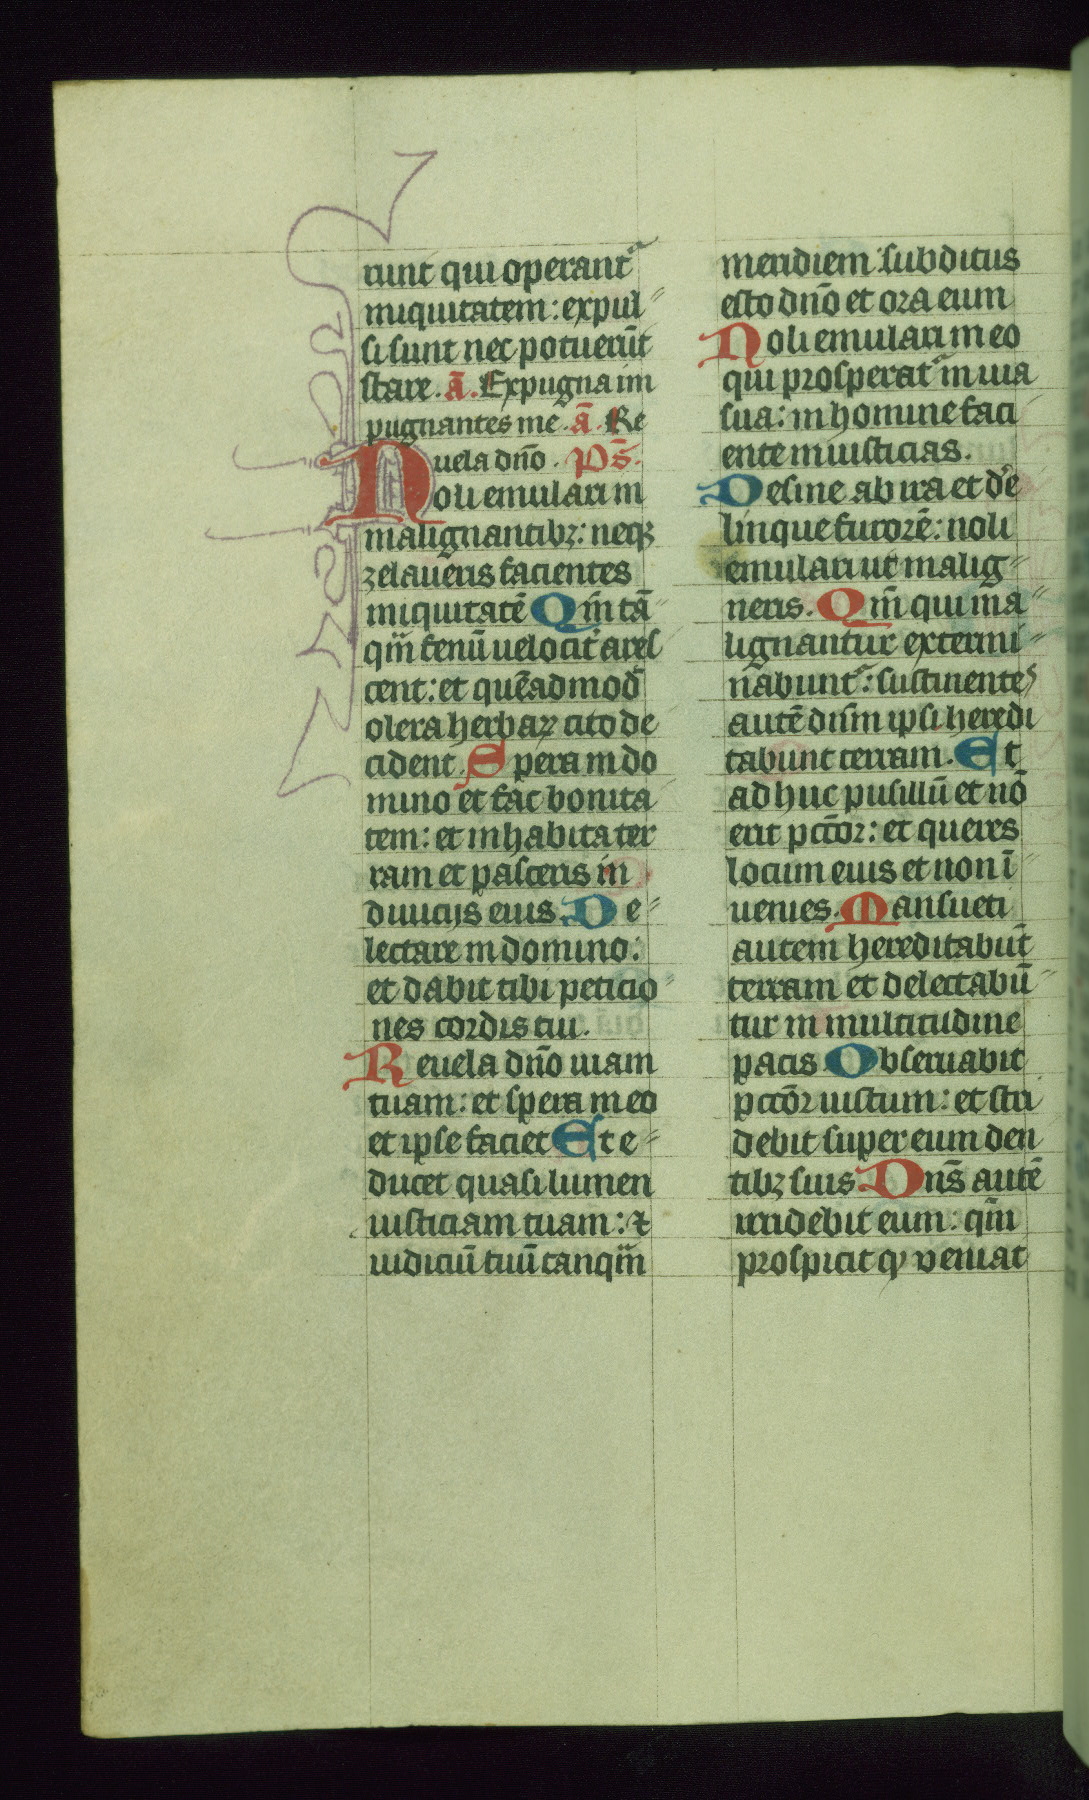 runt qui operant᷑
iniquitatem: expul
si sunt nec potuerūt
stare. ā. Expugna im
pugnantes me. ā. Re
uela dn̄o. Ps̄.
Noli emulari in
malignantibꝫ: neqꝫ
zelaueris facientes
iniquitatē Qm̄ tā
qm̄ fenū uelocit᷑ ares
cent: et quēadmod̄
olera herbaꝝ cito de
cident. Spera in do
mino et fac bonita
tem: et inhabita ter
ram et pasceris in
diuicijs eius. De
lectare in domino:
et dabit tibi peticio
nes cordis tui.
Reuela dn̄o uiam
tuam: et spera in eo
et ipse faciet Et e
ducet quasi lumen
iusticiam tuam: ⁊
iudiciū tuū tanqm̄
meridiem: subditus
esto dn̄o et ora eum
Noli emulari in eo
qui prosperat᷑ in uia
sua: in homine faci
ente iniusticias.
Desine ab ira et de
linque furorē: noli
emulari ut malig
neris. Qm̄ qui ma
lignantur extermi
nabunt᷑: sustinentes
autē dn̄m ipsi heredi
tabunt terram. Et
adhuc pusillū et nō
erit pctōr: et queres
locum eius et non ī
uenies. Mansueti
autem hereditabūt
terram et delectabū
tur in multitudine
pacis Obseruabit
pctōr iustum: et stri
debit super eum den
tibꝫ suis Dns̄ autē
irridebit eum: qm̄
prospicit qꝫ veniat